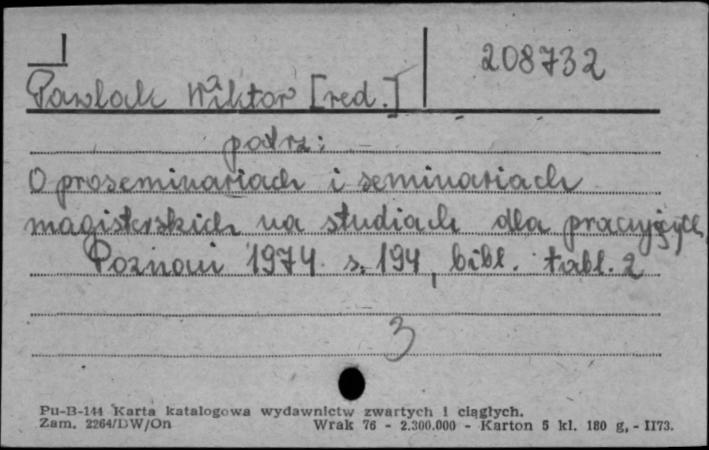 208732
Pawlak Wiktor [red.]
patrz:
O proseminariach i seminariach
magisterskich na studiach dla pracujących,
Poznań 1974 s. 194, bibl. tabl. 2
3
Pu-B-144 Karta katalogowa wydawnictw zwartych i ciągłych.
Zam. 2264/DW/On Wrak 76 - 2.300.000 - Karton 5 kl. 180 g, - II73.